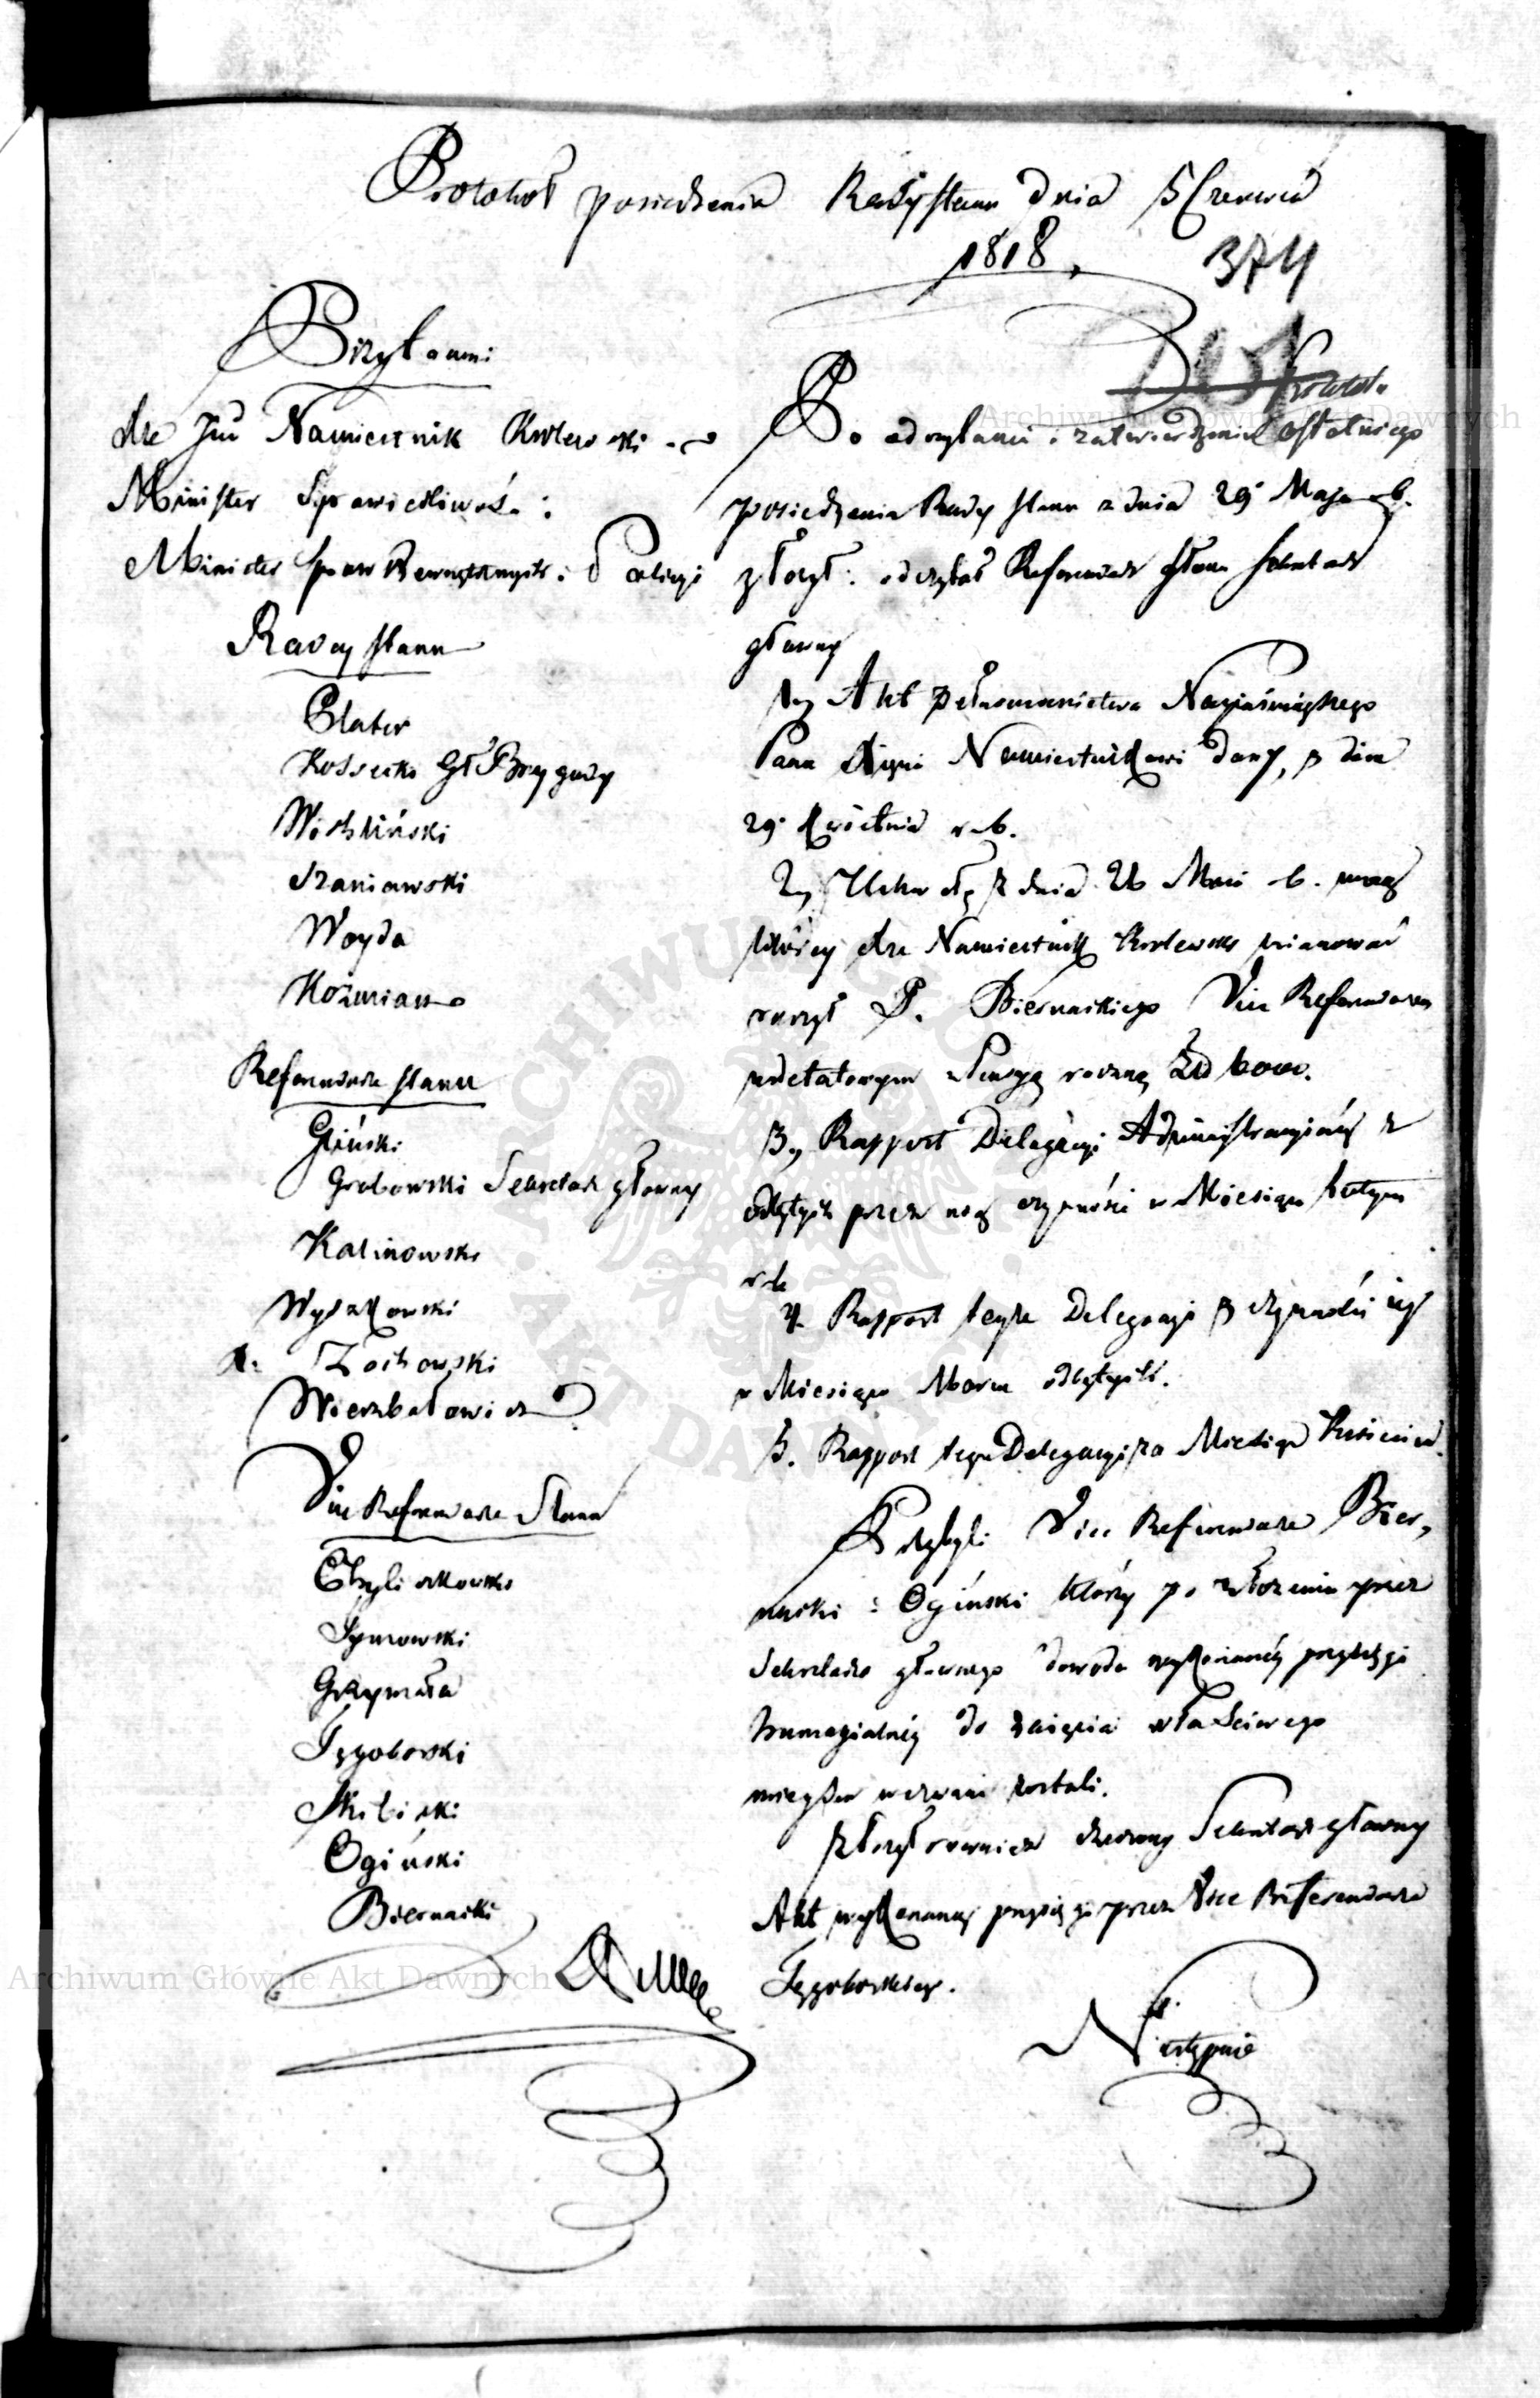 Protokół posiedzenia Rady Stanu dnia 5 Czerwca
1818.
374
Przytomni
Xże Jmć Namiestnik Królewski
Minister Sprawiedliwości
Minister Spraw Wewnętrznych i Policyi
Radcy Stanu
Plater
Kossecki Gł Brygady
Wichliński
Szaniawski
Woyda
Koźmian
Referendarze Stanu
Gliński
Grabowski Sekretarz główny
Kalinowski
Wyszkowski
X. Żochowski
Wierzbołowicz
Vice Referendarze Stanu
Chyliczkowski
Symowski
Grzymała
Tęgoborski
Skibicki
Ogiński
Biernacki
Po odczytaniu i zatwierdzeniu Protokołu ostatniego
posiedzenia Rady Stanu z dnia 29 Maja r. b.
złożył i odczytał Referendarz Stanu Sekretarz
główny
1. Akt pełnomocnictwa Nayjaśnieyszego
Pana Xięciu Namiestnikowi dany, z dnia
29 Kwietnia r. b.
2. Uchwałę z dnia 26 Maia r. b. mocą
któréy Xże Namiestnik Królewski mianować
raczył P. Biernackiego Vice Referendarzem
nadetatowym z Pensyą roczną Zł 6000.
3. Rapport Delegacyi Administracyinéy z
odbytych przez nią czynności w Miesiącu Lutym
r. b.
4. Rapport teyże Delegacyi z czynności iéy
w Miesiącu Marcu odbytych.
5. Rapport teyże Delegacyi za Miesiąc Kwiecień.
Przybyli Vice Referendarze Bier,
nacki i Ogiński którzy po złożeniu przez
Sekretarza głównego dowodu wykonanéy przysięgi
homagialnéy do zaięcia właściwego
mieysca wezwani zostali.
Złożył również rzeczony Sekretarz główny
Akt wykonanéy przysięgi przez Vice Referendarza
Tęgoborskiego.
Następnie
Archiwum Główne Akt Dawnych
Archiwum Główne Akt Dawnych